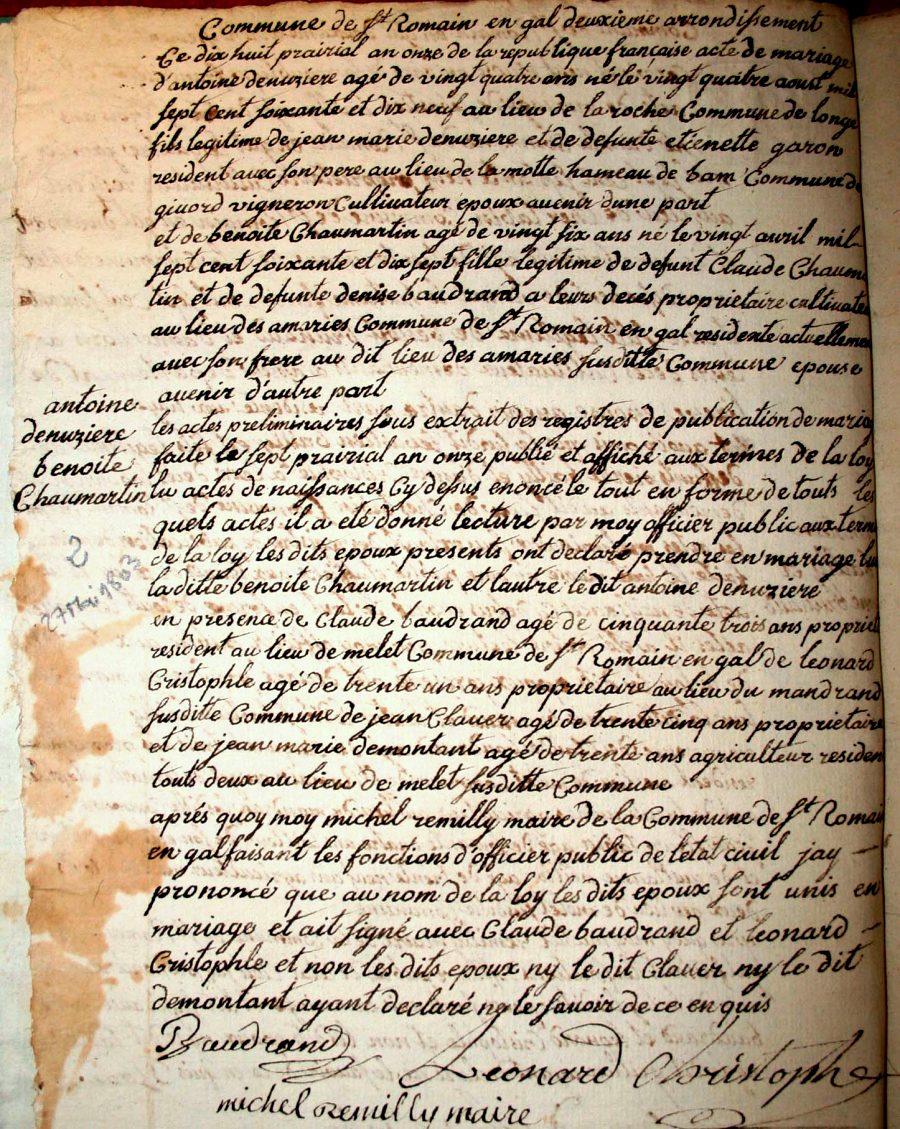 Commune de St Romain en gal deuxieme arrondissement
Ce dix huit prairial an onze de la republique française acte de mariage
d'antoine denuziere agé de vingt quatre ans né le vingt quatre aoust mil
sept cent soixante et dix neuf au lieu de la roche Commune de longe
fils legitime de jean marie denuziere et de defunte etienette garon
resident avec son pere au lieu de la motte hameau de bam Commune de
givord vigneron Cultivateur epoux avenir dune part
et de benoite Chaumartin agé de vingt six ans né le vingt avril mil
sept cent soixante et dix sept fille legitime de defunt Claude Chaumar
tin et de defunte denise baudrand a leurs decés proprietaire cultivate
au lieu des amaries Commune de St Romain en gal residente actuelleme
avec son frere au dit lieu des amaries susditte Commune epouse
avenir d'autre part
antoine
denuziere
benoite
Chaumartin
les actes preliminaires sous extrait des registres de publication de maria
faite le sept prairial an onze publié et affiché aux termes de la loy
lu actes de naissances Cy desus enoncé le tout en forme de touts les
quels actes il a eté donné lecture par moy officier public aux term
de la loy les dits epoux presents ont declaré prendre en mariage lu
la ditte benoite Chaumartin et lautre le dit antoine denuziere
2
27 Mai 1803
en presence de Claude baudrand agé de cinquante trois ans propriet
resident au lieu de melet Commune de St Romain en gal de leonard
Cristophle agé de trente un ans proprietaire au lieu du mandrand
susditte Commune de jean Claver agé de trente cinq ans proprietaire
et de jean marie demontant agé de trente ans agriculteur residen
touts deux au lieu de melet susditte Commune
aprés quoy moy michel remilly maire de la Commune de St Romain
en gal faisant les fonctions d'officier public de letat civil jay
prononcé que au nom de la loy les dits epoux sont unis en
mariage et ait signé avec Claude baudrand et leonard
Cristophle et non les dits epoux ny le dit Claver ny le dit
demontant ayant declaré ne le savoir de ce en quis
Baudrand Leonard Christophe
michel remilly maire